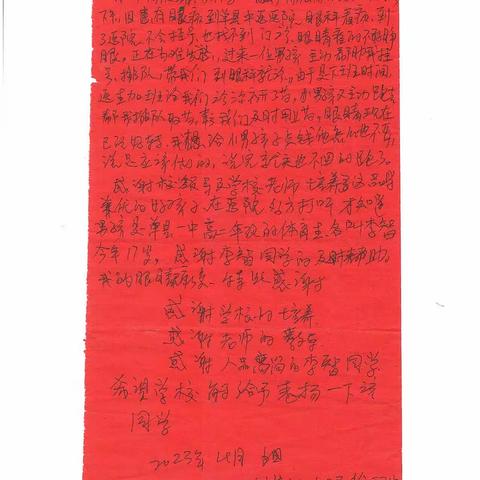 下旧患有眼病到单县中医医院眼科看病,到
了医院不会挂号也找不到门诊,眼睛看的不
眼。正在为难焦急,过来一位男孩主动帮助我挂
号、排队,带我们到眼科就诊。由于是下班时间,
医生加班给我们诊治开了药,小男孩又主动跑去
帮我排队取药,让我们及时用药,眼睛现在
已经好转,我想给小男孩子点钱他怎么也不要,
说是应该做的,说完连头也不回的跑了。
感谢校领导及学校老师培养了这品学
兼优的好孩子,在医院多方打听才知道
男孩是单县一中高二年级的体育生,名叫李智
今年17岁,感谢李智同学的及时帮助,
我的眼睛康复,特此感谢
感谢学校的培养
感谢老师的教育
感谢人品高尚的李智同学
希望学校能给予表扬一下该
同学
2023年4月